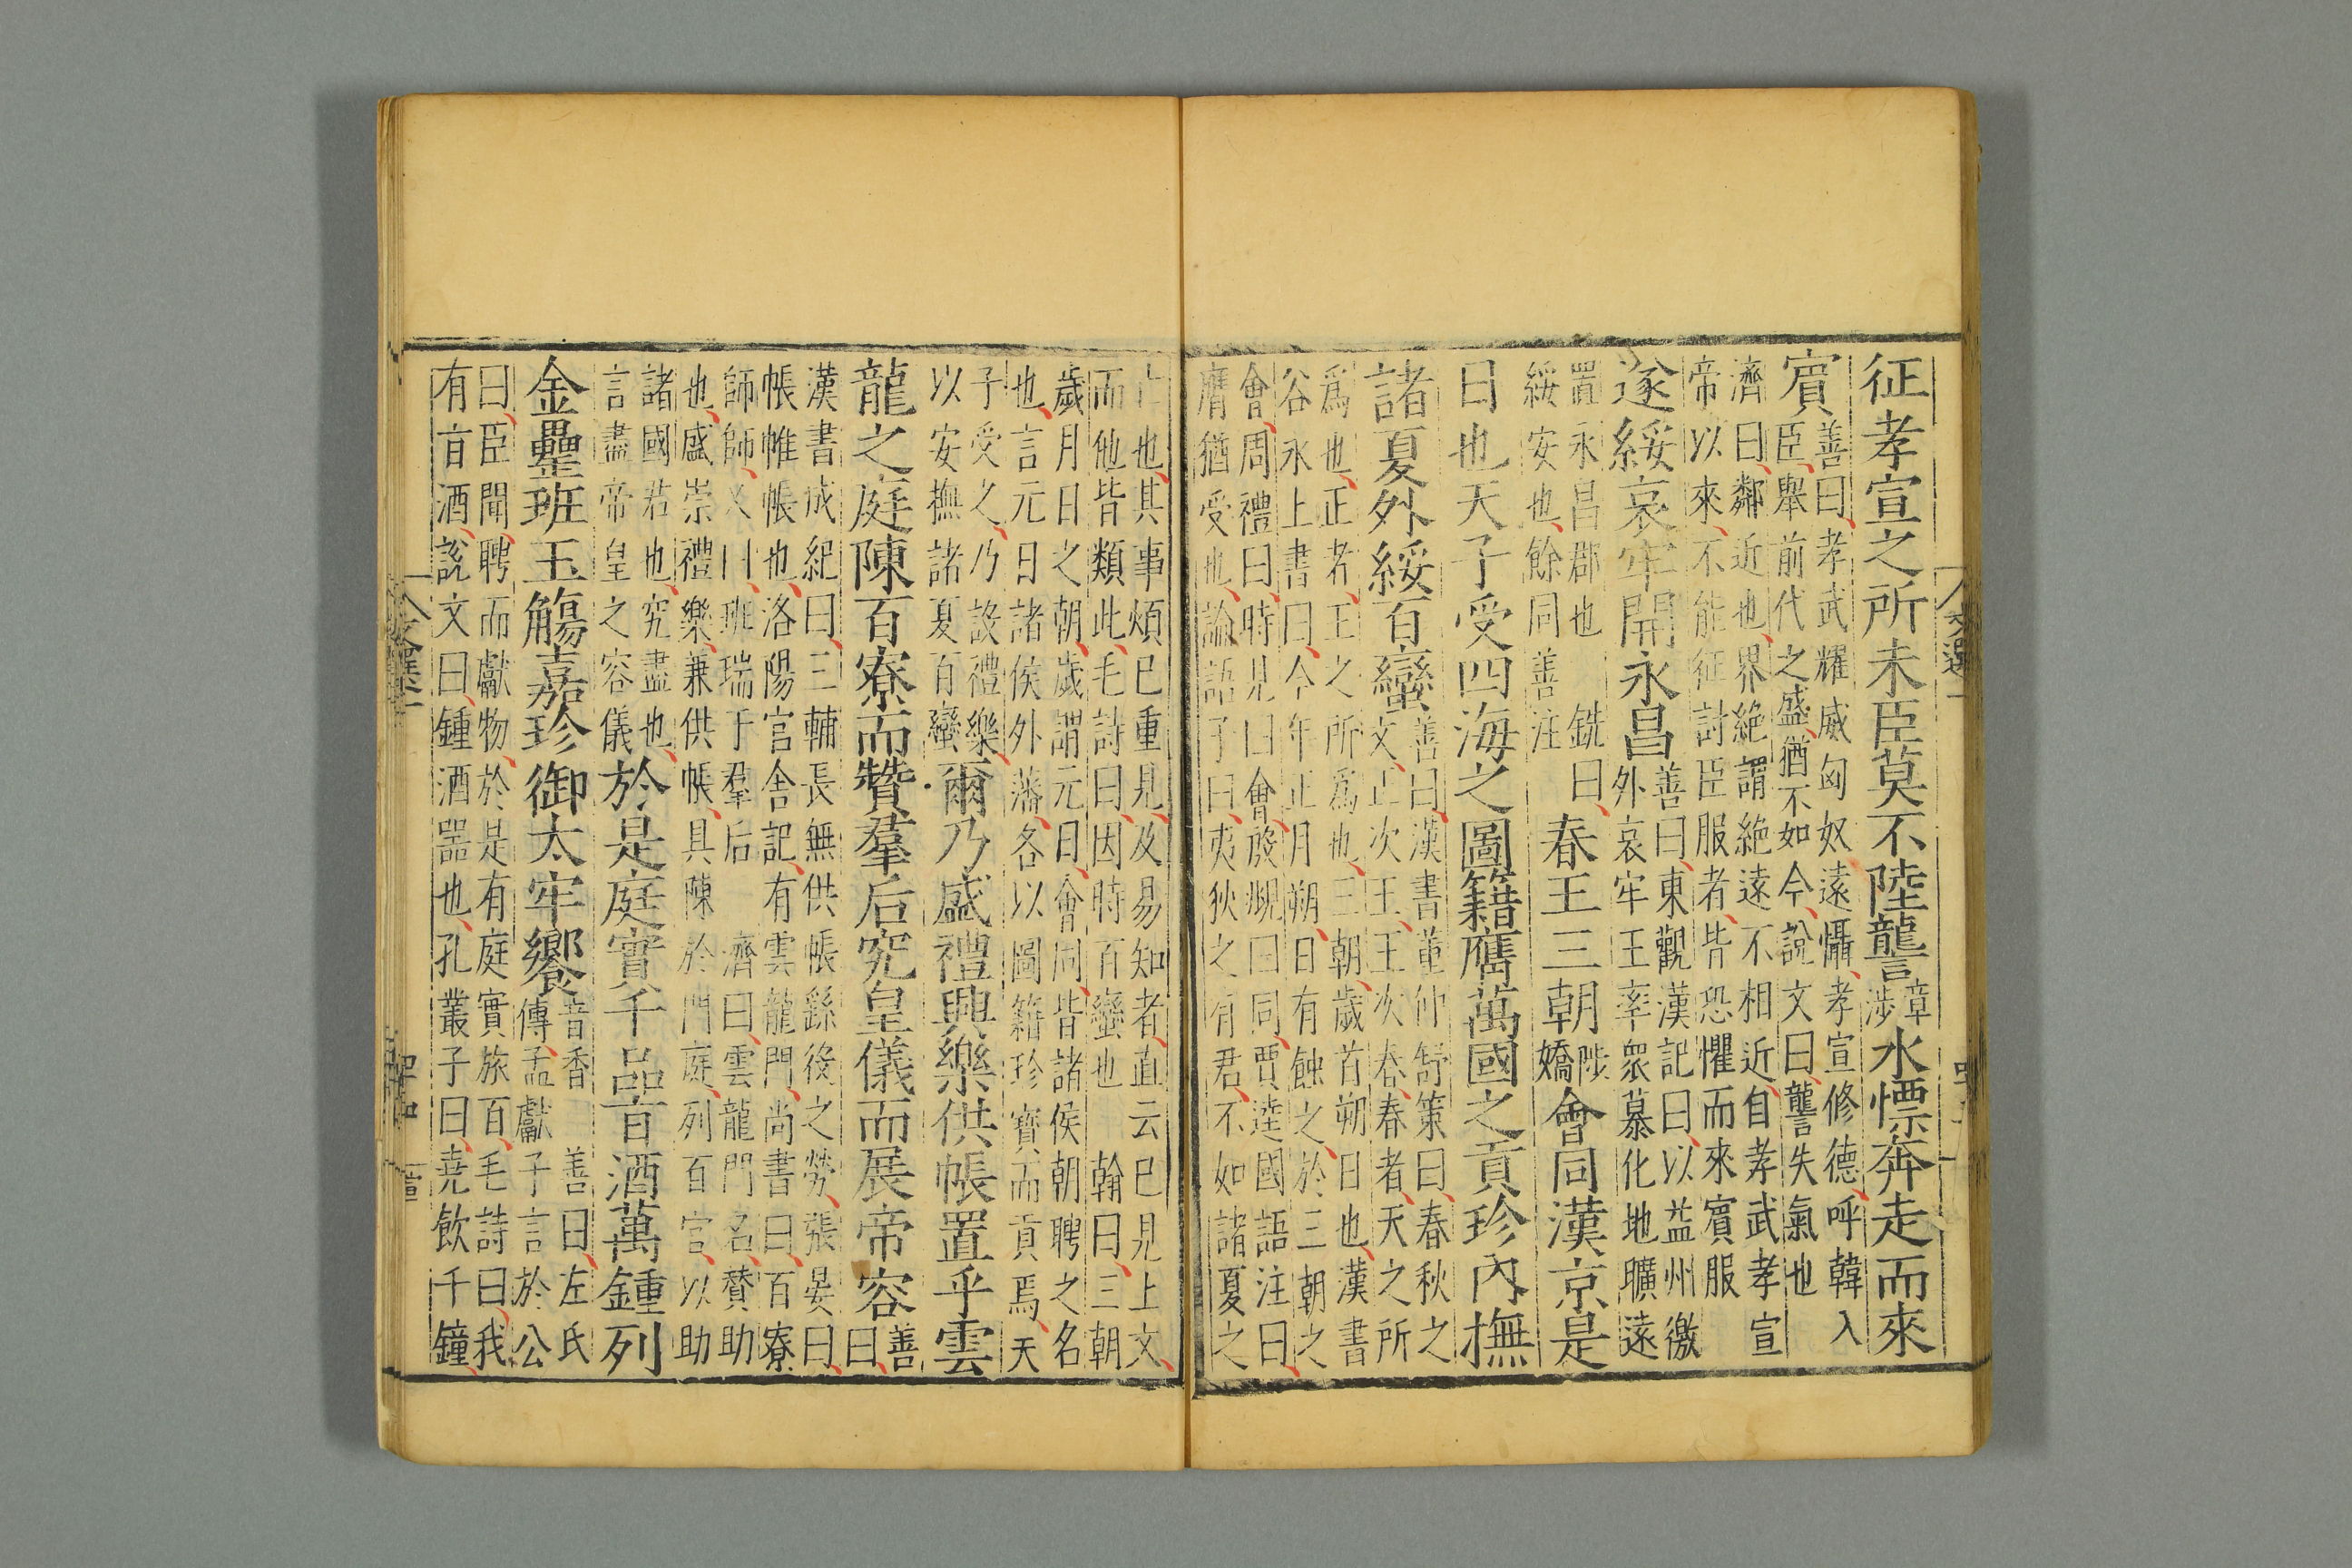 征孝宣之所未臣莫不陸讋章涉水慄奔走而來
賔善曰孝武耀威匈奴遠懾孝宣修德呼韓入
臣舉前代之盛猶不如今說文曰讋失氣也
濟曰鄰近也界絶謂絶遠不相近自孝武孝宣
帝以來不能征討臣服者皆恐懼而來賔服
遂綏哀牢開永昌善曰東觀漢記曰以益州徼
外哀牢王率衆慕化地曠遠
置永昌郡也 銑曰
綏安也餘同善注
春王三朝陟嬌會同漢京是
日也天子受四海之圖籍膺萬國之貢珍內撫
諸夏外綏百蠻善曰漢書董仲舒策曰春秋之
文正次王王次春春者天之所
爲也正者王之所爲也三朝歲首朔日也漢書
谷永上書曰今年正月朔日有蝕之於三朝之
會周禮曰時見曰會殷覜曰同賈逵國語注曰
膺猶受也論語子曰夷狄之有君不如諸夏之
亡也其事煩已重見及易知者直云已見上文
而他皆類此毛詩曰因時百蠻也 翰曰三朝
歲月日之朝歲謂元日會同皆諸侯朝聘之名
也言元日諸侯外藩各以圖籍珍寳而貢焉天
子受之乃設禮樂
以安撫諸夏百蠻
爾乃盛禮興樂供帳置乎雲
龍之庭陳百寮而贊羣后究皇儀而展帝容善曰
漢書成紀曰三輔長無供帳繇役之勞張晏曰
帳帷帳也洛陽宮舍記有雲龍門尚書曰百寮
師師又曰班瑞于羣后 濟曰雲龍門名賛助
也盛崇禮樂兼供帳具陳於門庭列百官以助
諸國君也究盡也
言盡帝皇之容儀
於是庭實千品㫖酒萬鍾列
金罍班玉觴嘉珍御太牢饗音香 善曰左氏
傳孟獻子言於公
曰臣聞聘而獻物於是有庭實旅百毛詩曰我
有㫖酒說文曰鍾酒器也孔叢子曰堯飲千鐘